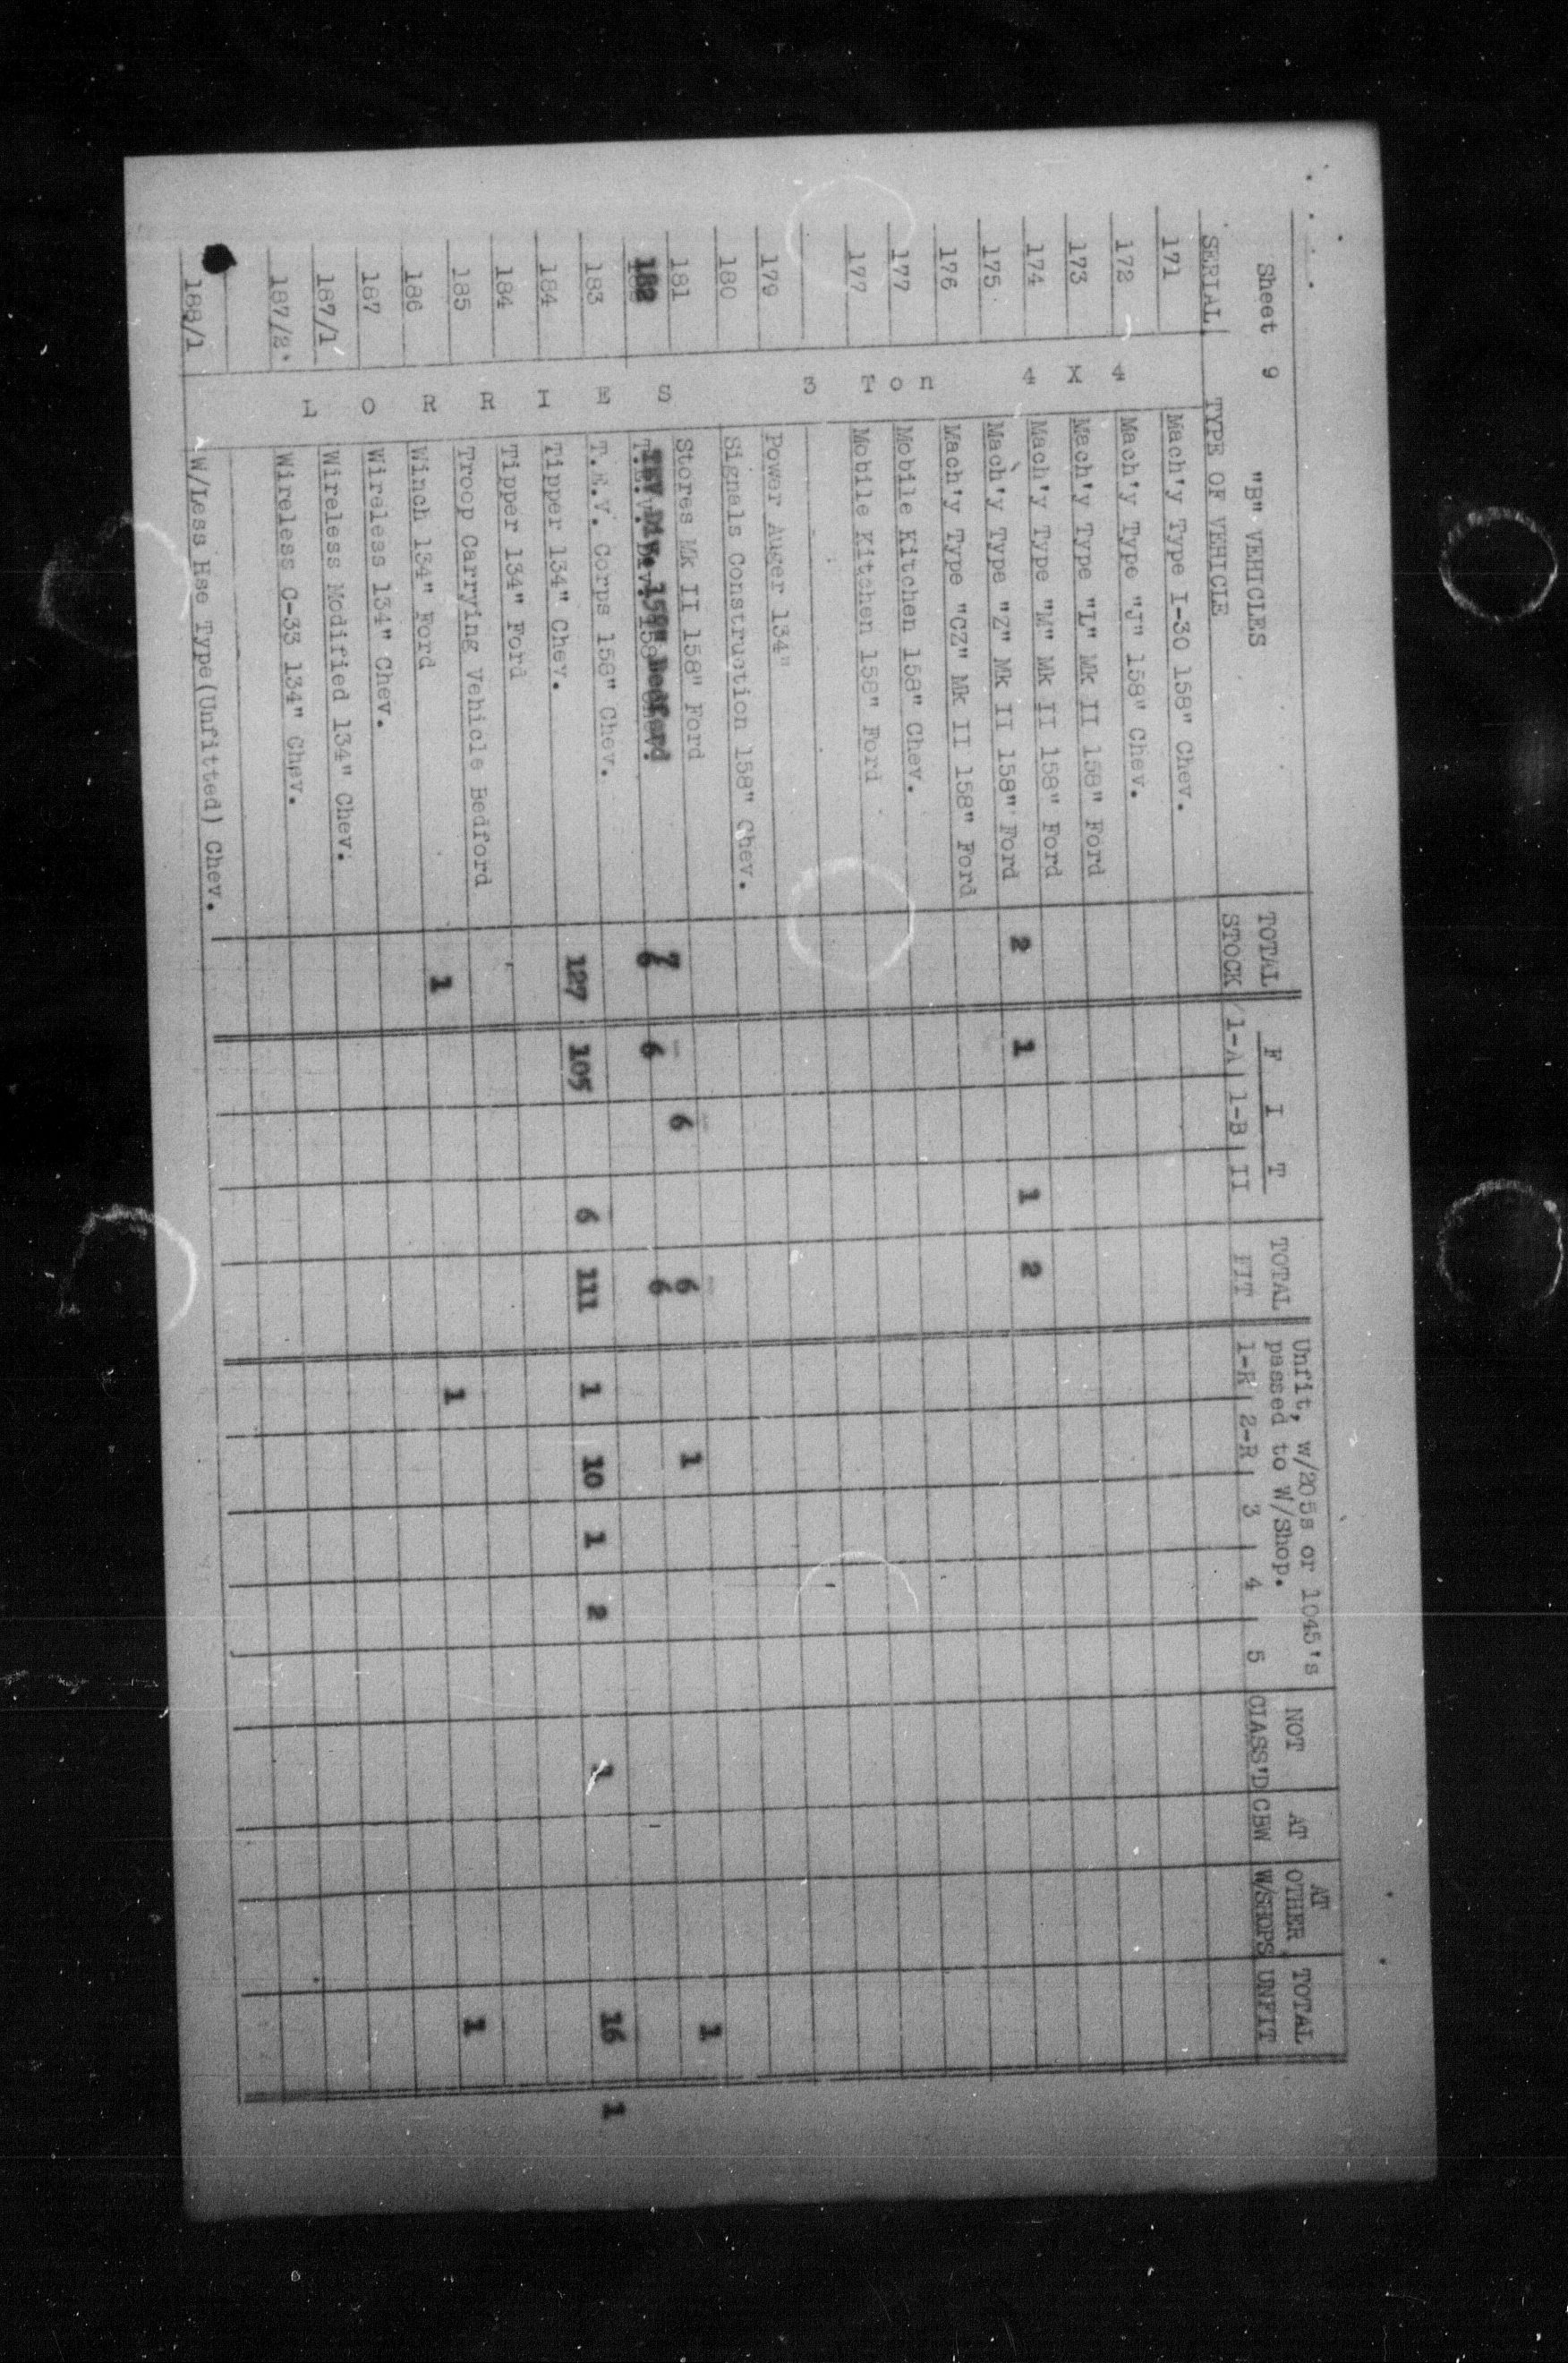 Sheet 9 "B" VEHICLES
SERIAL TYPE OF VEHICLE TOTAL STOCK F I T 1-A 1-B II TOTAL FIT Unfit, w/205s or 1045's passed to W/Shop. 1-R 2-R 3 4 5 NOT CLASS'D AT CBW AT OTHER W/SHOPS TOTAL UNFIT
LORRIES 3 Ton 4 X 4
171 Mach'y Type I-30 158" Chev.
172 Mach'y Type "J" 158" Chev.
173 Mach'y Type "L" Mk II 158" Ford
174 Mach'y Type "M" Mk II 158" Ford
175 Mach'y Type "Z" Mk II 158" Ford 2 1 1 2
176 Mach'y Type "CZ" Mk II 158" Ford
177 Mobile Kitchen 158" Chev.
177 Mobile Kitchen 158" Ford
179 Power Auger 134"
180 Signals Construction 158" Chev.
181 Stores Mk II 158" Ford
7 6 6 1 1
182 TEV Div. 158" Bedford 6 6 6
183 T.E.V. Corps 158" Chev.
184 Tipper 134" Chev. 127 105 6 111 1 10 1 2 1 16 1
184 Tipper 134" Ford
185 Troop Carrying Vehicle Bedford
186 Winch 134" Ford 1 1 1
187 Wireless 134" Chev.
187/1 Wireless Modified 134" Chev.
187/2 Wireless C-33 134" Chev.
188/1 W/Less Hse Type(Unfitted) Chev.